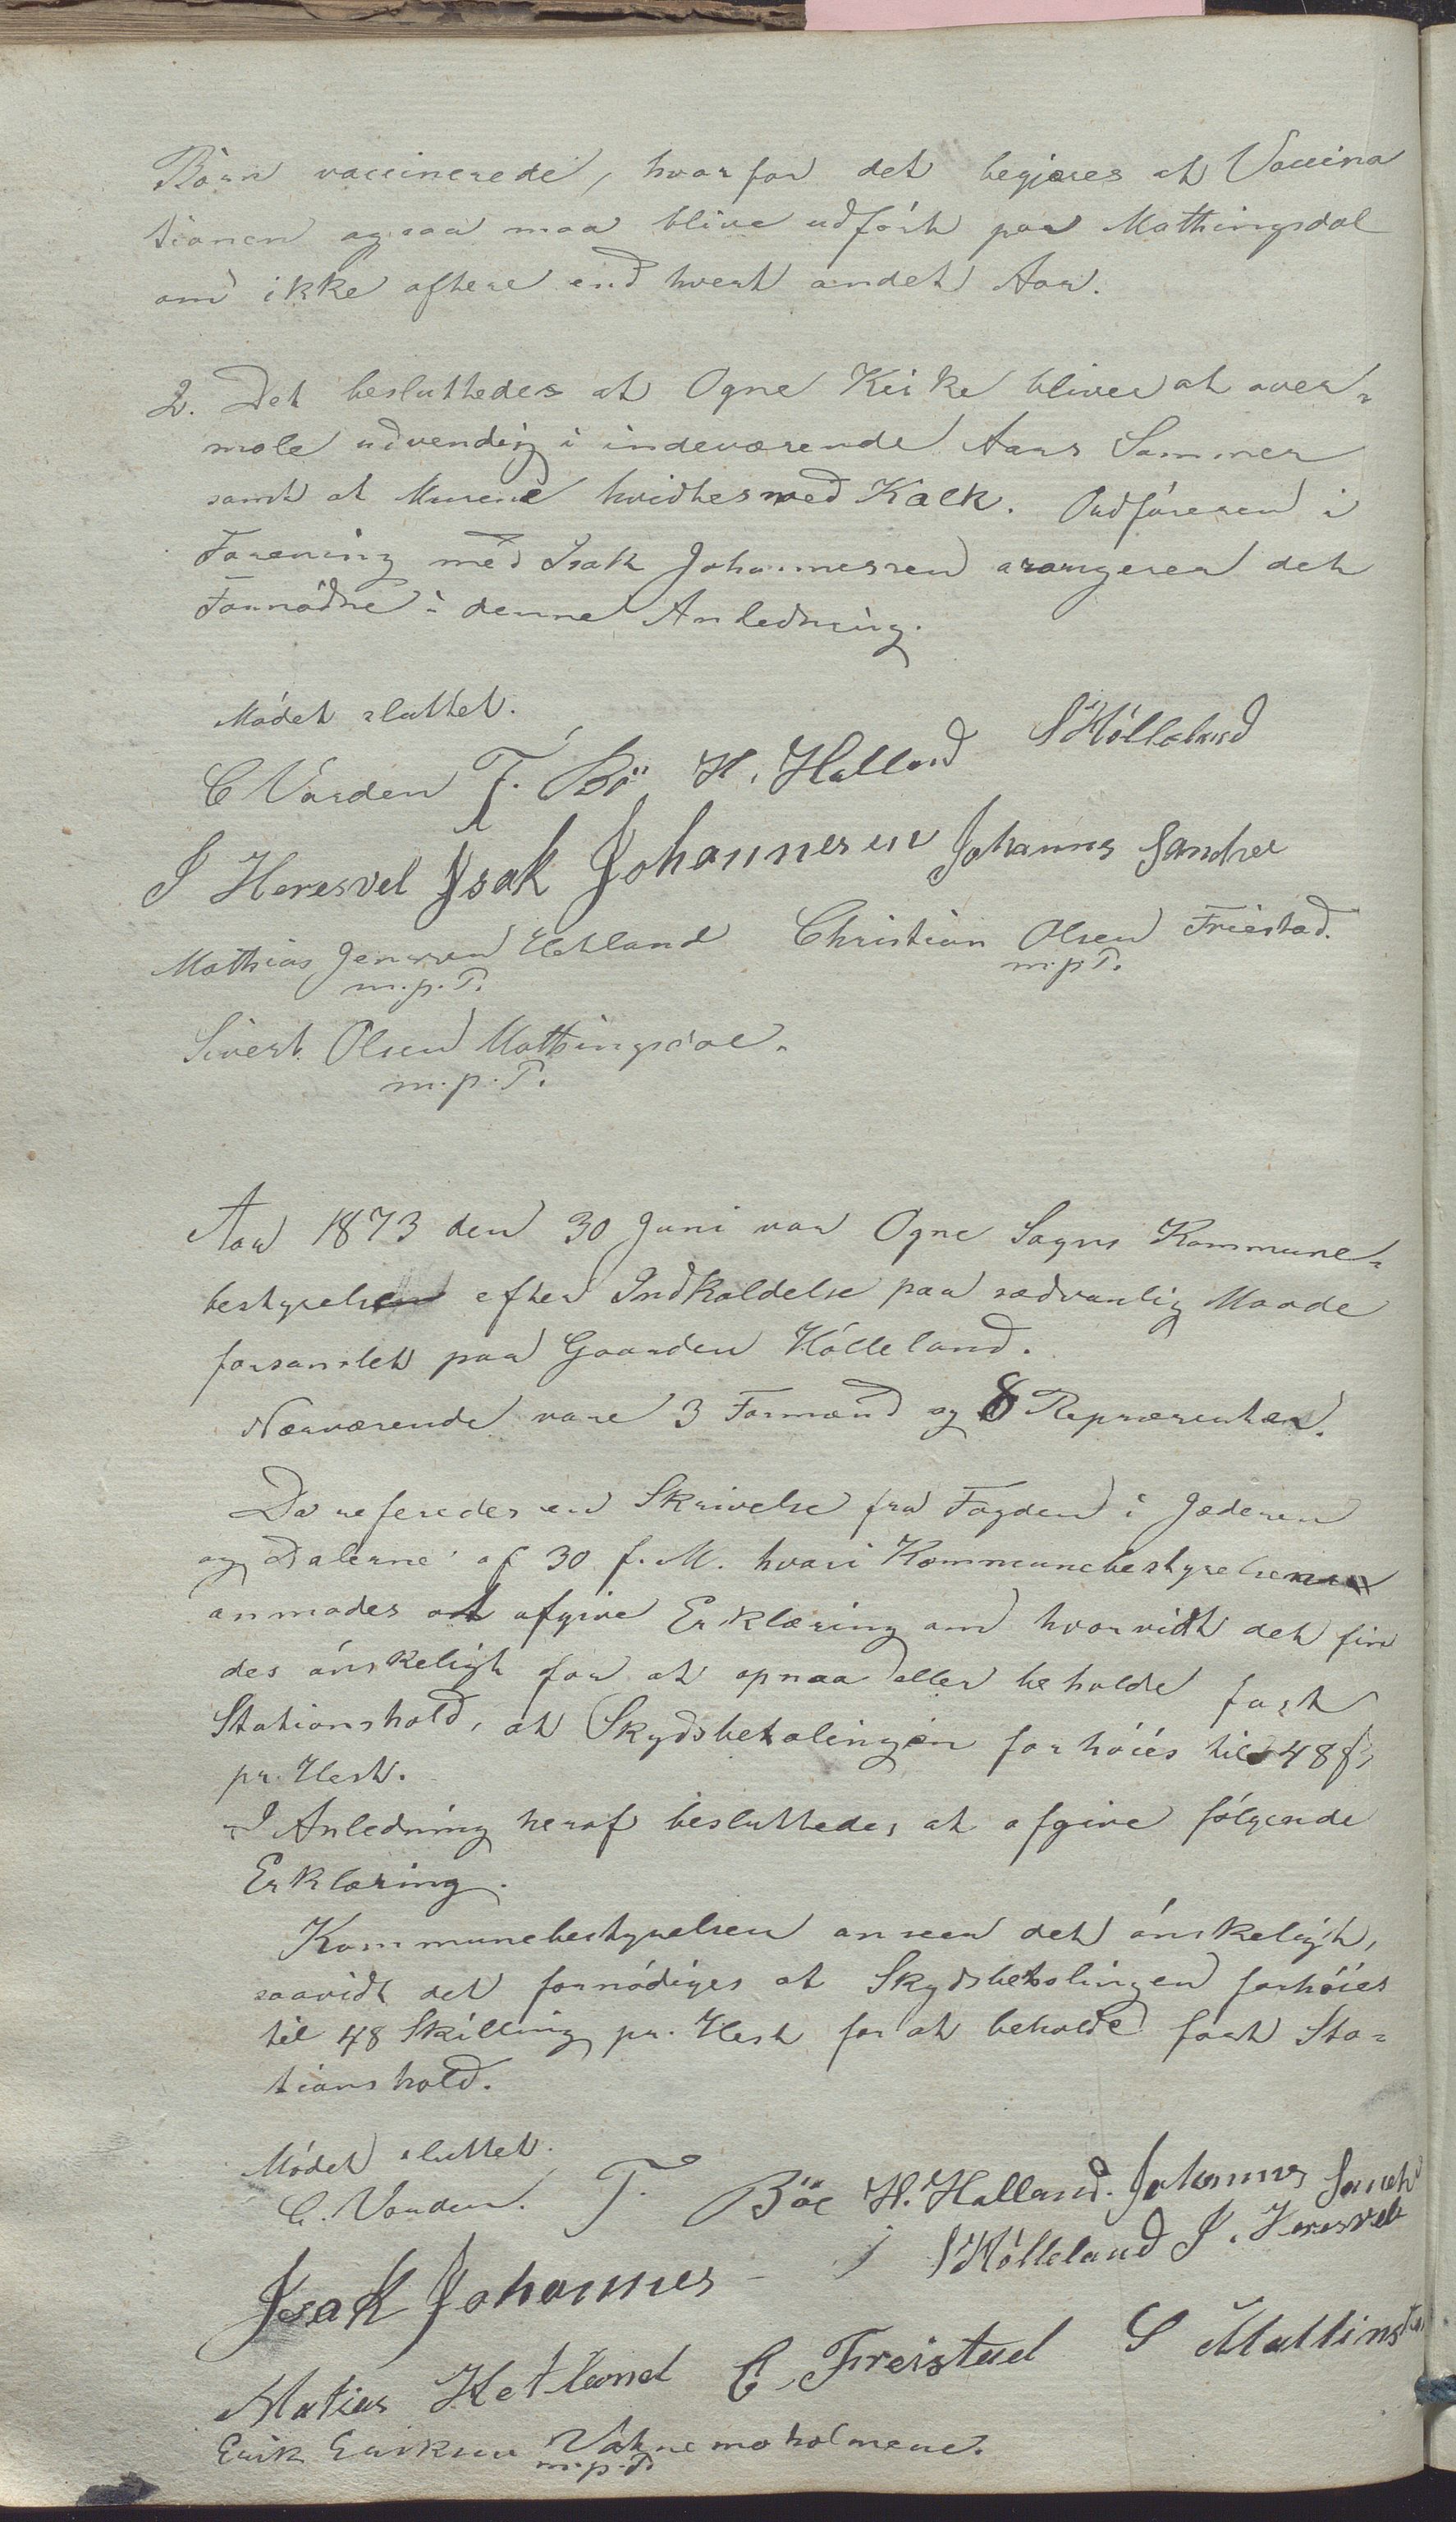 Börn vaccinerede, hvorfor det begjæres at Vaccina
tionen ogsaa maa blive udfört paa Mathingsdal
om ikke oftere end hvert andet Aar.
2. Det besluttedes at Ogne Kirke bliver at over-
male udvendig i indeværende Aars Sommer
samt at Murene hvidtes med Kalk. Ordföreren i
Forening med Isak Johannessen arangerer det
Fornödne i denne Anledning.
Mödet sluttet.
C Varden T. Bö H. Halland S Hölleland
I Heresvel Isak Johannesen Johannes Sandve
Mathias Jensen Hetland Christian Olsen Friestad.
m.p.P. m.p.P.
Sivert Olsen Mathingsdal.
m.p.P.
Aar 1873 den 30 Juni var Ogne Sogns Kommune-
bestyrelse efter Indkaldelse paa sædvanlig Maade
forsamlet paa Gaarden Hölleland.
Nærværende vare 3 Formænd og 8 Repræsentan.
Da refereredes en Skrivelse fra Fogden i Jæderen
og Dalerne af 30 f. M. hvori Kommunebestyrelsen
anmodes at afgive Erklæring om hvorvidt det fin
des önskeligt for at opnaa eller beholde fast
Stationshold, at Skydsbetalingen forhöies til 48 ß
pr. Hest.
I Anledning heraf besluttedes at afgive fölgende
Erklæring.
Kommunebestyrelsen anseer det önskeligt,
saavidt det fornödiges at Skydsbetalingen forhöies
til 48 Skilling pr. Hest for at beholde fast Sta-
tionshold.
Mödet sluttet.
C. Varden. T. Böe H. Halland. Johannes Sandv
Isak Johannes S Hölleland I. Heresvel
Matias Hetland C. Freistad S Mattinsdal
Erik Eriksen Vatnemoholmene.
m.p.P.